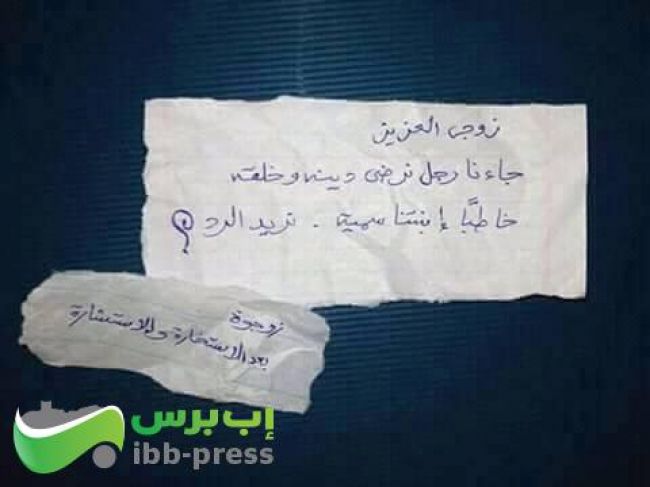 زوجي العزيز
جاءنا رجل نرضى دينه وخلقه
خاطبًا إبنتنا سمية . نريد الرد ؟
زوجوه
بعد الاستخارة والاستشارة
إب برس
ibb-press